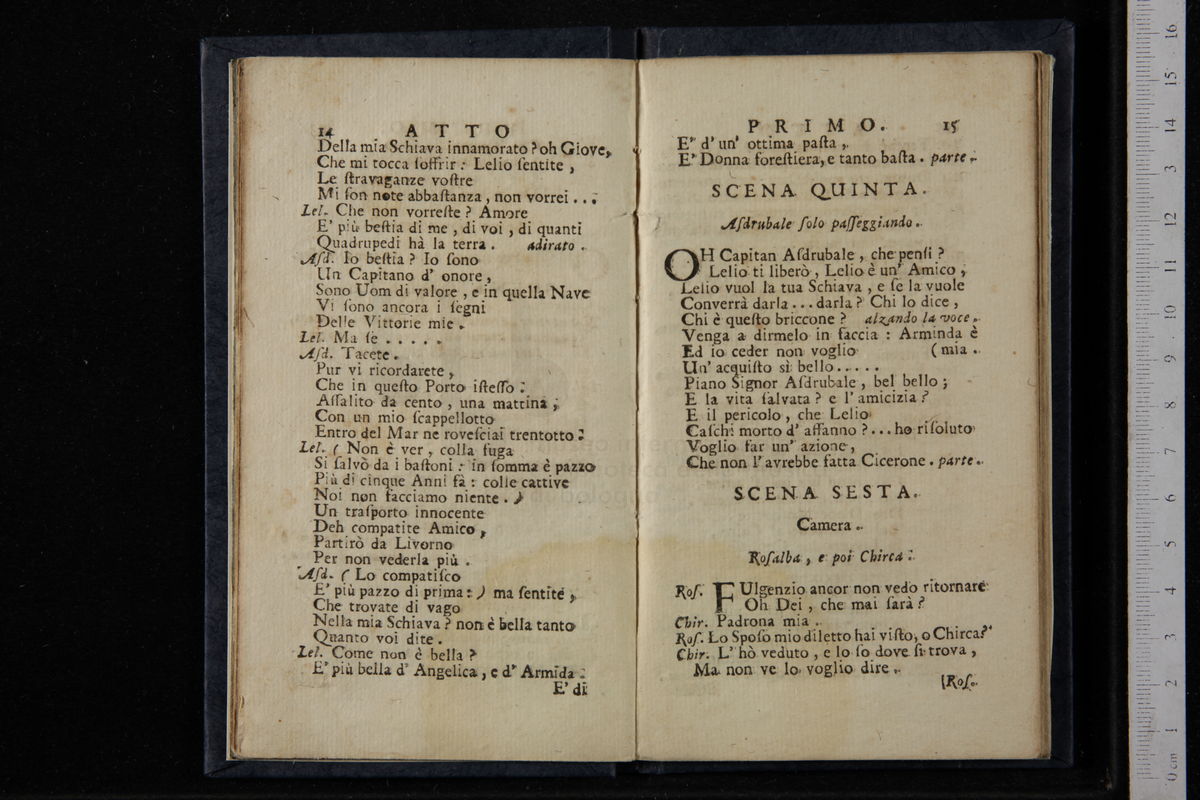 14 ATTO
Della mia Schiava innamorato? oh Giove,
Che mi tocca ſoffrir: Lelio ſentite,
Le ſtravaganze voſtre
Mi ſon note abbaſtanza, non vorrei...
Lel. Che non vorreſte? Amore
E' più beſtia di me, di voi, di quanti
Quadrupedi hà la terra. adirato.
Aſd. Io beſtia? Io ſono
Un Capitano d' onore,
Sono Uom di valore, e in quella Nave
Vi ſono ancora i ſegni
Delle Vittorie mie.
Lel. Ma ſe .....
Aſd. Tacete.
Pur vi ricordarete,
Che in queſto Porto iſteſſo:
Aſſalito da cento, una mattina,
Con un mio ſcappellotto
Entro del Mar ne roveſciai trentotto:
Lel. (Non è ver, colla fuga
Si ſalvò da i baſtoni: in ſomma è pazzo
Più di cinque Anni fà: colle cattive
Noi non facciamo niente.)
Un traſporto innocente
Deh compatite Amico,
Partirò da Livorno
Per non vederla più.
Aſd. (Lo compatiſco
E' più pazzo di prima:) ma ſentite,
Che trovate di vago
Nella mia Schiava? non è bella tanto
Quanto voi dite.
Lel. Come non è bella?
E' più bella d' Angelica, e d' Armida:
E' di
PRIMO. 15
E' d' un' ottima paſta,
E' Donna foreſtiera, e tanto baſta. parte.
SCENA QUINTA.
Aſdrubale ſolo paſſeggiando.
OH Capitan Aſdrubale, che penſi?
Lelio ti liberò, Lelio è un' Amico,
Lelio vuol la tua Schiava, e ſe la vuole
Converrà darla... darla? Chi lo dice,
Chi è queſto briccone? alzando la voce.
Venga a dirmelo in faccia: Arminda è
Ed io ceder non voglio (mia.
Un' acquiſto sì bello.....
Piano Signor Aſdrubale, bel bello;
E la vita ſalvata? e l' amicizia?
E il pericolo, che Lelio
Caſchi morto d' affanno?... ho riſoluto
Voglio far un' azione,
Che non l' avrebbe fatta Cicerone. parte.
SCENA SESTA.
Camera.
Roſalba, e poi Chirca.
Roſ. FUlgenzio ancor non vedo ritornare
Oh Dei, che mai ſarà?
Chir. Padrona mia.
Roſ. Lo Spoſo mio diletto hai viſto, o Chirca?
Chir. L' hò veduto, e lo ſo dove ſi trova,
Ma non ve lo voglio dire.
[Roſ.
0 cm 1 2 3 4 5 6 7 8 9 10 11 12 13 14 15 16